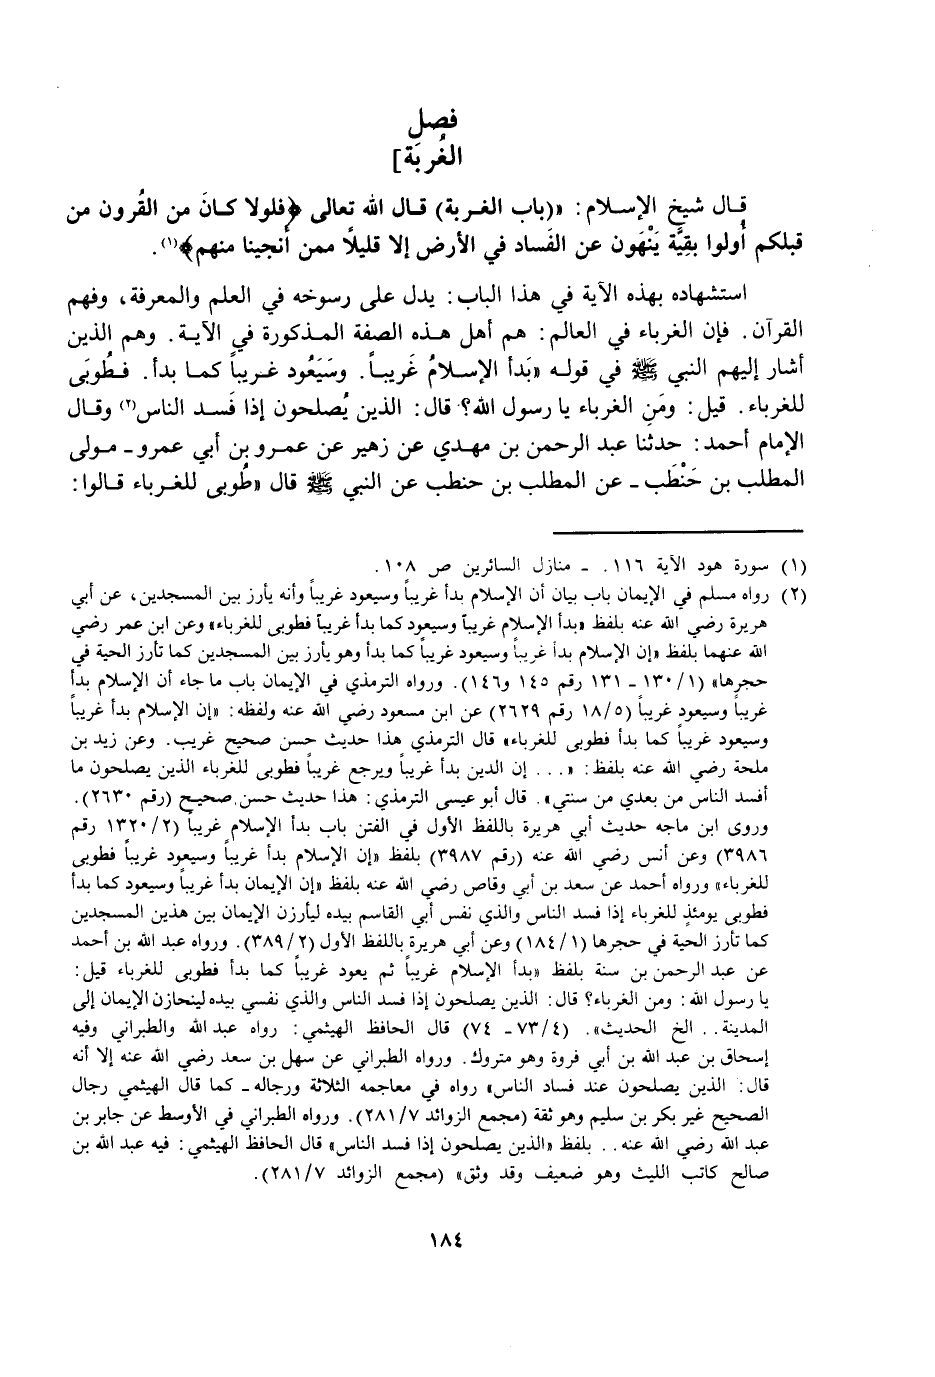 فصل
الغُربَة]
قال شيخ الإسلام: «(باب الغربة) قال الله تعالى ﴿فلولا كانَ من القُرون من
قبلكم أُولوا بقِيَّة يَنْهَون عن الفَساد في الأرض إلا قليلًا ممن أنجينا منهم﴾(١).
استشهاده بهذه الآية في هذا الباب: يدل على رسوخه في العلم والمعرفة، وفهم
القرآن. فإن الغرباء في العالم: هم أهل هذه الصفة المذكورة في الآية. وهم الذين
أشار إليهم النبي ﷺ في قوله «بَدأ الإسلامُ غَريباً. وسَيَعُود غريباً كما بدأ. فطُوبَى
للغرباء. قيل: ومَنِ الغرباء يا رسول الله؟ قال: الذين يُصلحون إذا فَسد الناس(٢) وقال
الإمام أحمد: حدثنا عبد الرحمن بن مهدي عن زهير عن عمرو بن أبي عمرو ـ مولى
المطلب بن حَنْطَب ـ عن المطلب بن حنطب عن النبي ﷺ قال «طُوبى للغرباء قالوا:
(١) سورة هود الآية ١١٦. ـ منازل السائرين ص ١٠٨.
(٢) رواه مسلم في الإيمان باب بيان أن الإسلام بدأ غريباً وسيعود غريباً وأنه يأرز بين المسجدين، عن أبي
هريرة رضي الله عنه بلفظ «بدأ الإسلام غريباً وسيعود كما بدأ غريباً فطوبى للغرباء» وعن ابن عمر رضي
الله عنهما بلفظ «إن الإسلام بدأ غريباً وسيعود غريباً كما بدأ وهو يأرز بين المسجدين كما تأرز الحية في
حجرها» (١/ ١٣٠ ـ ١٣١ رقم ١٤٥ و١٤٦). ورواه الترمذي في الإيمان باب ما جاء أن الإسلام بدأ
غريباً وسيعود غريباً (١٨/٥ رقم ٢٦٢٩) عن ابن مسعود رضي الله عنه ولفظه: «إن الإسلام بدأ غريباً
وسيعود غريباً كما بدأ فطوبى للغرباء» قال الترمذي هذا حديث حسن صحيح غريب. وعن زيد بن
ملحة رضي الله عنه بلفظ: «... إن الدين بدأ غريباً ويرجع غريباً فطوبى للغرباء الذين يصلحون ما
أفسد الناس من بعدي من سنتي». قال أبو عيسى الترمذي: هذا حديث حسن صحيح (رقم ٢٦٣٠).
وروى ابن ماجه حديث أبي هريرة باللفظ الأول في الفتن باب بدأ الإسلام غريباً (٢/ ١٣٢٠ رقم
٣٩٨٦) وعن أنس رضي الله عنه (رقم ٣٩٨٧) بلفظ «إن الإسلام بدأ غريباً وسيعود غريباً فطوبى
للغرباء» ورواه أحمد عن سعد بن أبي وقاص رضي الله عنه بلفظ «إن الإيمان بدأ غريباً وسيعود كما بدأ
فطوبى يومئذٍ للغرباء إذا فسد الناس والذي نفس أبي القاسم بيده ليأرزن الإيمان بين هذين المسجدين
كما تأرز الحية في حجرها (١/ ١٨٤) وعن أبي هريرة باللفظ الأول (٢/ ٣٨٩). ورواه عبد الله بن أحمد
عن عبد الرحمن بن سنة بلفظ «بدأ الإسلام غريباً ثم يعود غريباً كما بدأ فطوبى للغرباء قيل:
يا رسول الله: ومن الغرباء؟ قال: الذين يصلحون إذا فسد الناس والذي نفسي بيده لينحازن الإيمان إلى
المدينة.. الخ الحديث». (٤/ ٧٣ ـ ٧٤) قال الحافظ الهيثمي: رواه عبد الله والطبراني وفيه
إسحاق بن عبد الله بن أبي فروة وهو متروك. ورواه الطبراني عن سهل بن سعد رضي الله عنه إلا أنه
قال: الذين يصلحون عند فساد الناس» رواه في معاجمه الثلاثة ورجاله ـ كما قال الهيثمي رجال
الصحيح غير بكر بن سليم وهو ثقة (مجمع الزوائد ٧/ ٢٨١). ورواه الطبراني في الأوسط عن جابر بن
عبد الله رضي الله عنه.. بلفظ «الذين يصلحون إذا فسد الناس» قال الحافظ الهيثمي: فيه عبد الله بن
صالح كاتب الليث وهو ضعيف وقد وثق» (مجمع الزوائد ٧/ ٢٨١).
١٨٤